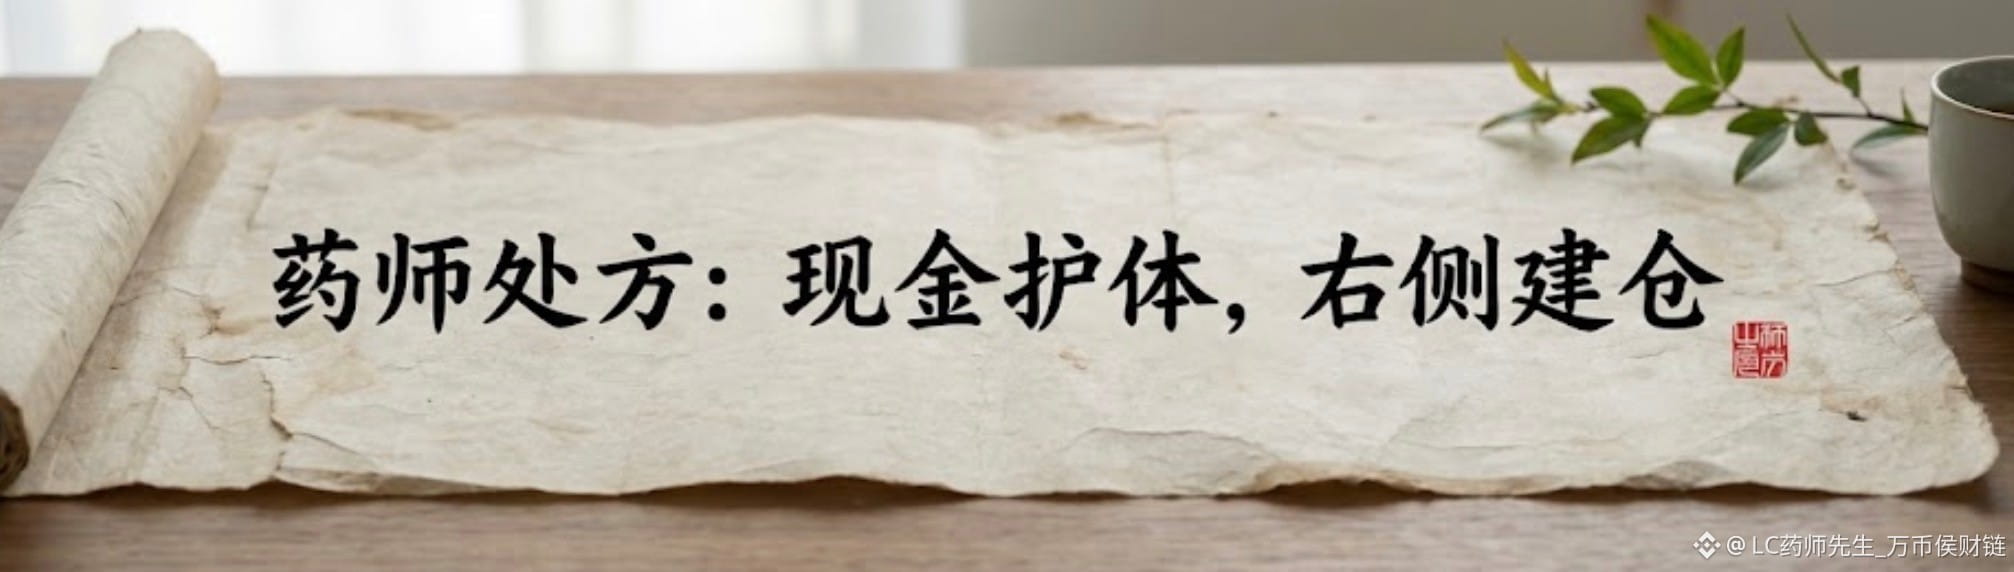 药师处方：现金护体，右侧建仓
@LC药师先生_万币侯财链